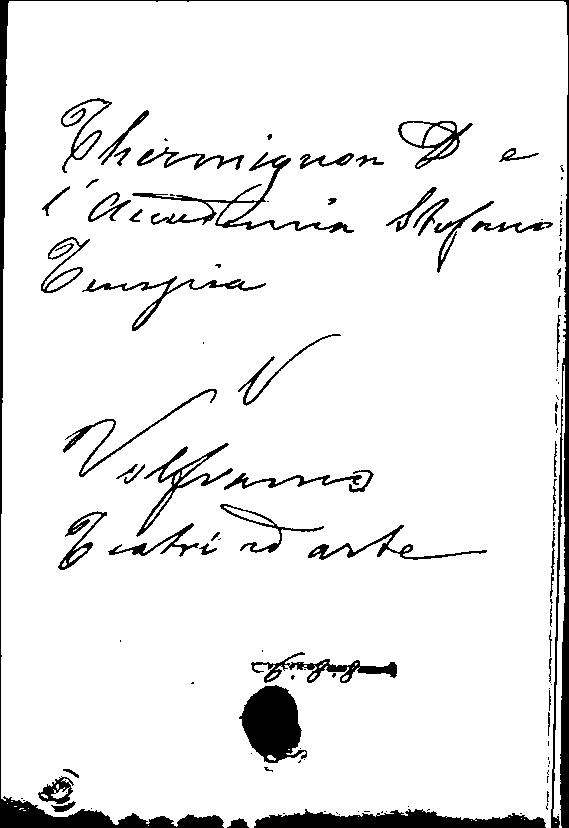 Thermignon D e
l'Accademia Stefano
Tempia
V
Volframo
Teatri ed arte